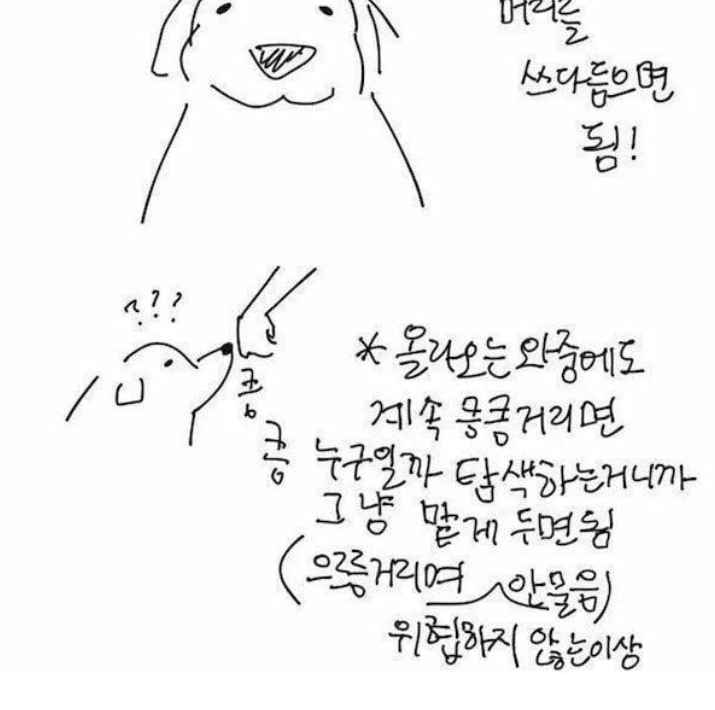 머리를
쓰다듬으면
됨!
???
킁
킁
* 올라오는 와중에도
계속 킁킁거리면
누구일까 탐색하는거니까
그냥 맡게 두면됨
(으릉거리며 안물음)
위협하지 않는이상